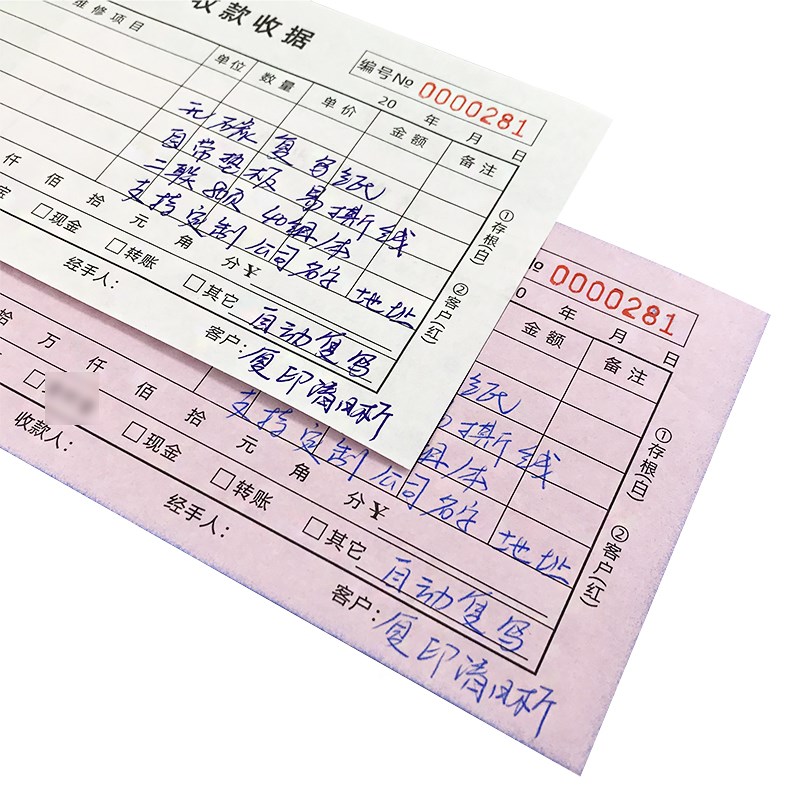 收款收据
编号№ 0000281
20 年 月 日
维修项目 单位 数量 单价 金额 备注
无碳复写纸
自带垫板 易撕线
二联 40组/本
支持定制公司名字 地址
仟 佰 拾 元 角 分¥
□现金 □转账 □其它
自动复写
经手人: 客户:
复印清晰
①存根(白) ②客户(红)
№ 0000281
0 年 月 日
金额 备注
纸
撕线
组/本
支持定制公司名字 地址
拾 万 仟 佰 拾 元 角 分¥
□现金 □转账 □其它
自动复写
收款人: 经手人: 客户:
复印清晰
①存根(白) ②客户(红)